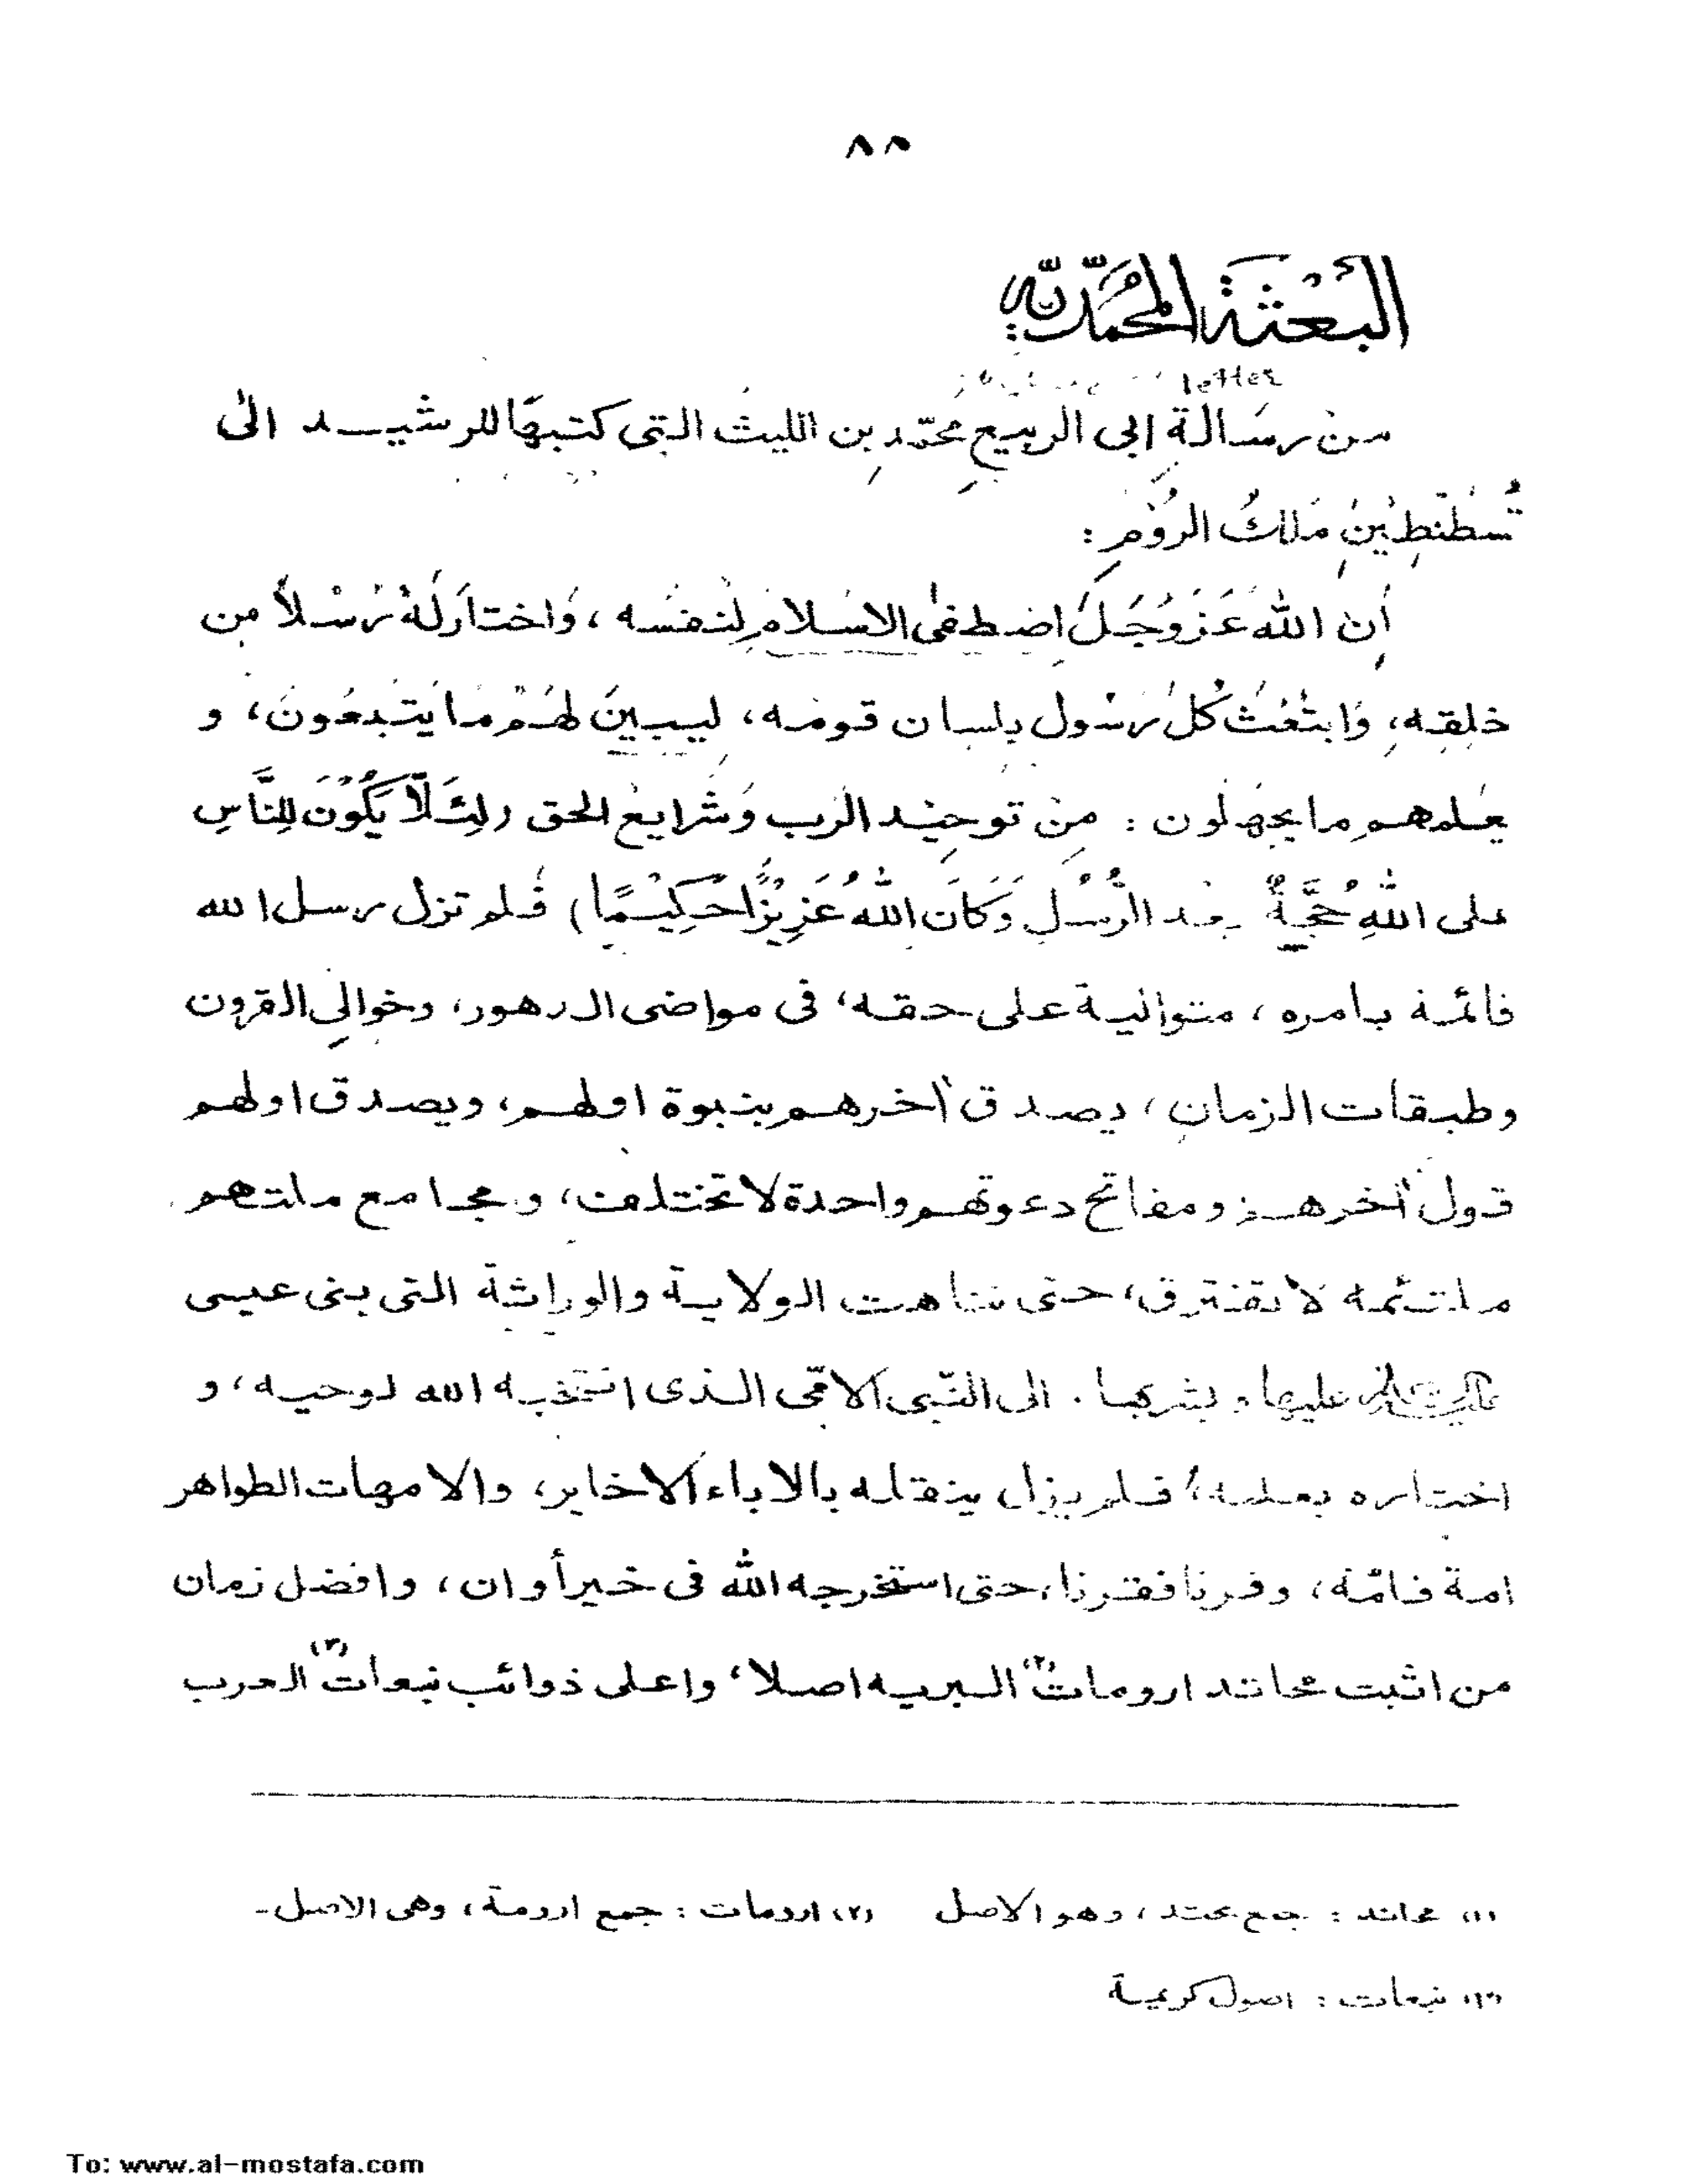 ٨٨
البَعْثَةَ المحمَّدِيَّه
letter
من رسَالة ابى الربيعِ محمّدِ بن الليث التى كتبهَا للرشيد الىٰ
قُسطَنطِينِ مَلكُ الرُومِ :
أن اللهَ عَزَوَجَلَ اصْطفىٰ الاسَلامَ لنفسَه ، وَاختارَ لَهُ رُسْلاً من
خلقِه، وَابتَعثَ كلَ رسُول بلسان قومه، ليبينَ لهَمْ مَا يتَبعُونَ، و
يعَلمهم ما يجهَلون : مِن توحِيد الرَب وَشَرايعِ الحق (لِئَلَّا يَكُوْنَ لِلنَّاسِ
على اللهِ حُجَّةٌ بعد الرُّسُلِ وَكَانَ اللهُ عَزِيْزًا حَكِيْمًا) فَلم تزل رسل الله
قائمة بامره ، متوالية على حقه، فى مواضى الدهور، وخوالىِ القرون
وطبقات الزمان ، يصدق آخرهم بنبوة اولهم، ويصدق اولهم
قول آخرهم ومفاتح دعوتهم واحدة لا تختلف، ومجامع ملتهم
ملتئمه لا تفترق، حتى تناهت الولاية والوراثة التى بنى عيسى
عليها وبشربها . الى النّبى الامّى الذى انتخبه الله لوحيه، و
اختاره بعلمه، فلم يزل ينقله بالاباء الاخاير، والامهات الطواهر
امة فامّة، وقرنا فقرنا، حتى استخرجه الله فى خير أوان ، وافضل زمان
من اثبت محاتد ارومات(٢) البريه اصلا، واعلى ذوائب نبعات(٣) العرب
(١) محاتد : جمع محتد ، وهو الاصل (٢) ارومات : جمع ارومة ، وهى الاصل -
(٣) نبعات : اصول كريمة
To: www.al-mostafa.com